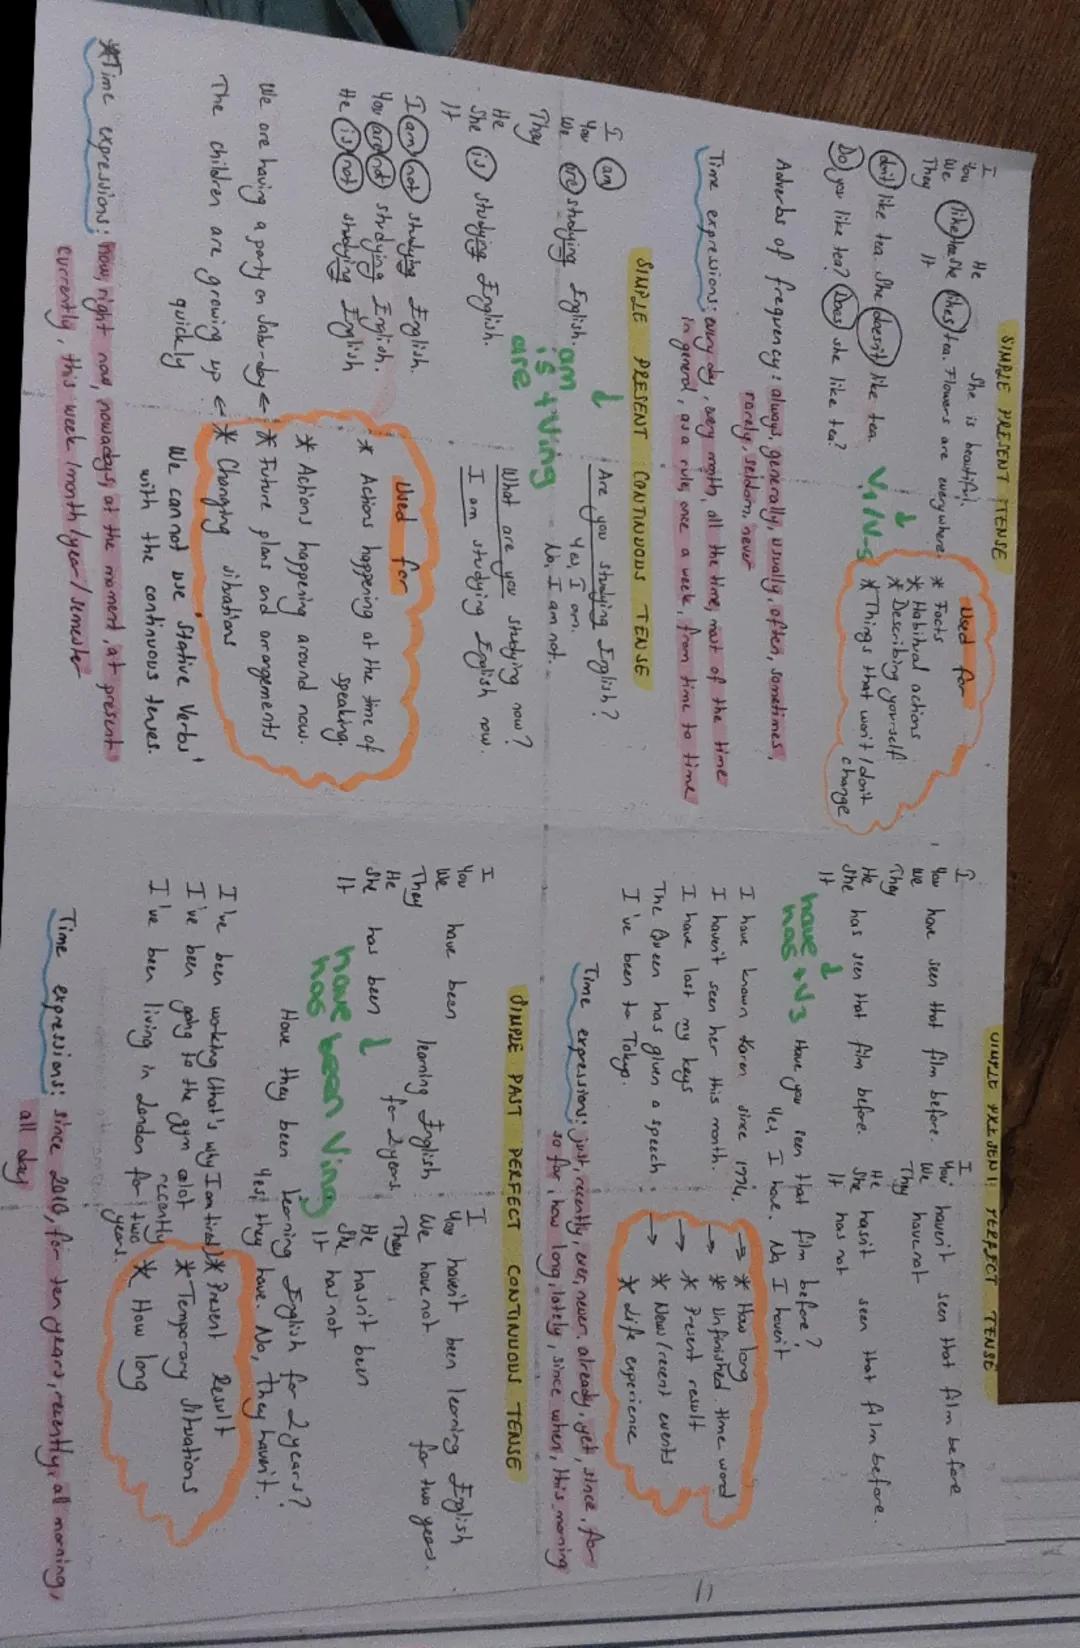 SIMPLE PRESENT TENSE
I He She is beautiful.
You
We like tea She likes tea. Flowers are everywhere.
They It
don't like tea She doesn't like tea
Do you like tea? Does she like tea?
V1/V-s
Used for
* Facts
* Habitual actions
* Describing yourself
* Things that won't/don't
change
Adverbs of frequency: always, generally, usually, often, sometimes,
rarely, seldom, never
Time expressions: every day, every month, all the time, most of the time
in general, as a rule, once a week, from time to time
SIMPLE PRESENT CONTINUOUS TENSE
I am
You
We are studying English.
They
He
She is studying English.
It
am
is + Ving
are
Are you studying English?
Yes, I am.
No, I am not.
What are you studying now?
I am studying English now.
I am not studying English.
You are not studying English.
He is not studying English
Used for
* Actions happening at the time of
speaking.
* Actions happening around now.
We are having a party on Sab-day ← * Future plans and arrangements
The children are growing up ← * Changing sitvations
quickly
We cannot use 'Stative Verbs'
with the continuous tenses.
*Time expressions: now, right now, nowadays, at the moment, at present
currently, this week/month/year/semester
SIMPLE PRESENT PERFECT TENSE
I
You have seen that film before.
We
They
He
She has seen that film before.
It
I
You haven't seen that film before
We have not
They
He
She hasn't seen that film before.
It has not
have
has + V3
Have you seen that film before?
Yes, I have. No, I haven't
I have known Karen since 1994. → * How long
I haven't seen her this month. → * Unfinished time word
I have lost my keys → * Present result
The Queen has given a speech. → * New/recent events
I've been to Tokyo. → * Life experience
Time expressions: just, recently, ever, never, already, yet, since, for
so far, how long, lately, since when, this morning
SIMPLE PAST PERFECT CONTINUOUS TENSE
I
You have been
We
They
He
She has been
It
learning English
for 2 years
I
You haven't been learning English
We have not for two years.
They
He
She hasn't been
It has not
have been Ving
has
Have they been learning English for 2 years?
Yes, they have. No, they haven't.
I've been working (that's why I am tired) * Present Result
I've been going to the gym alot * Temporary Sitvations
recently
I've been living in London for two * How long
years.
Time expressions: since 2010, for ten years, recently, all morning,
all day